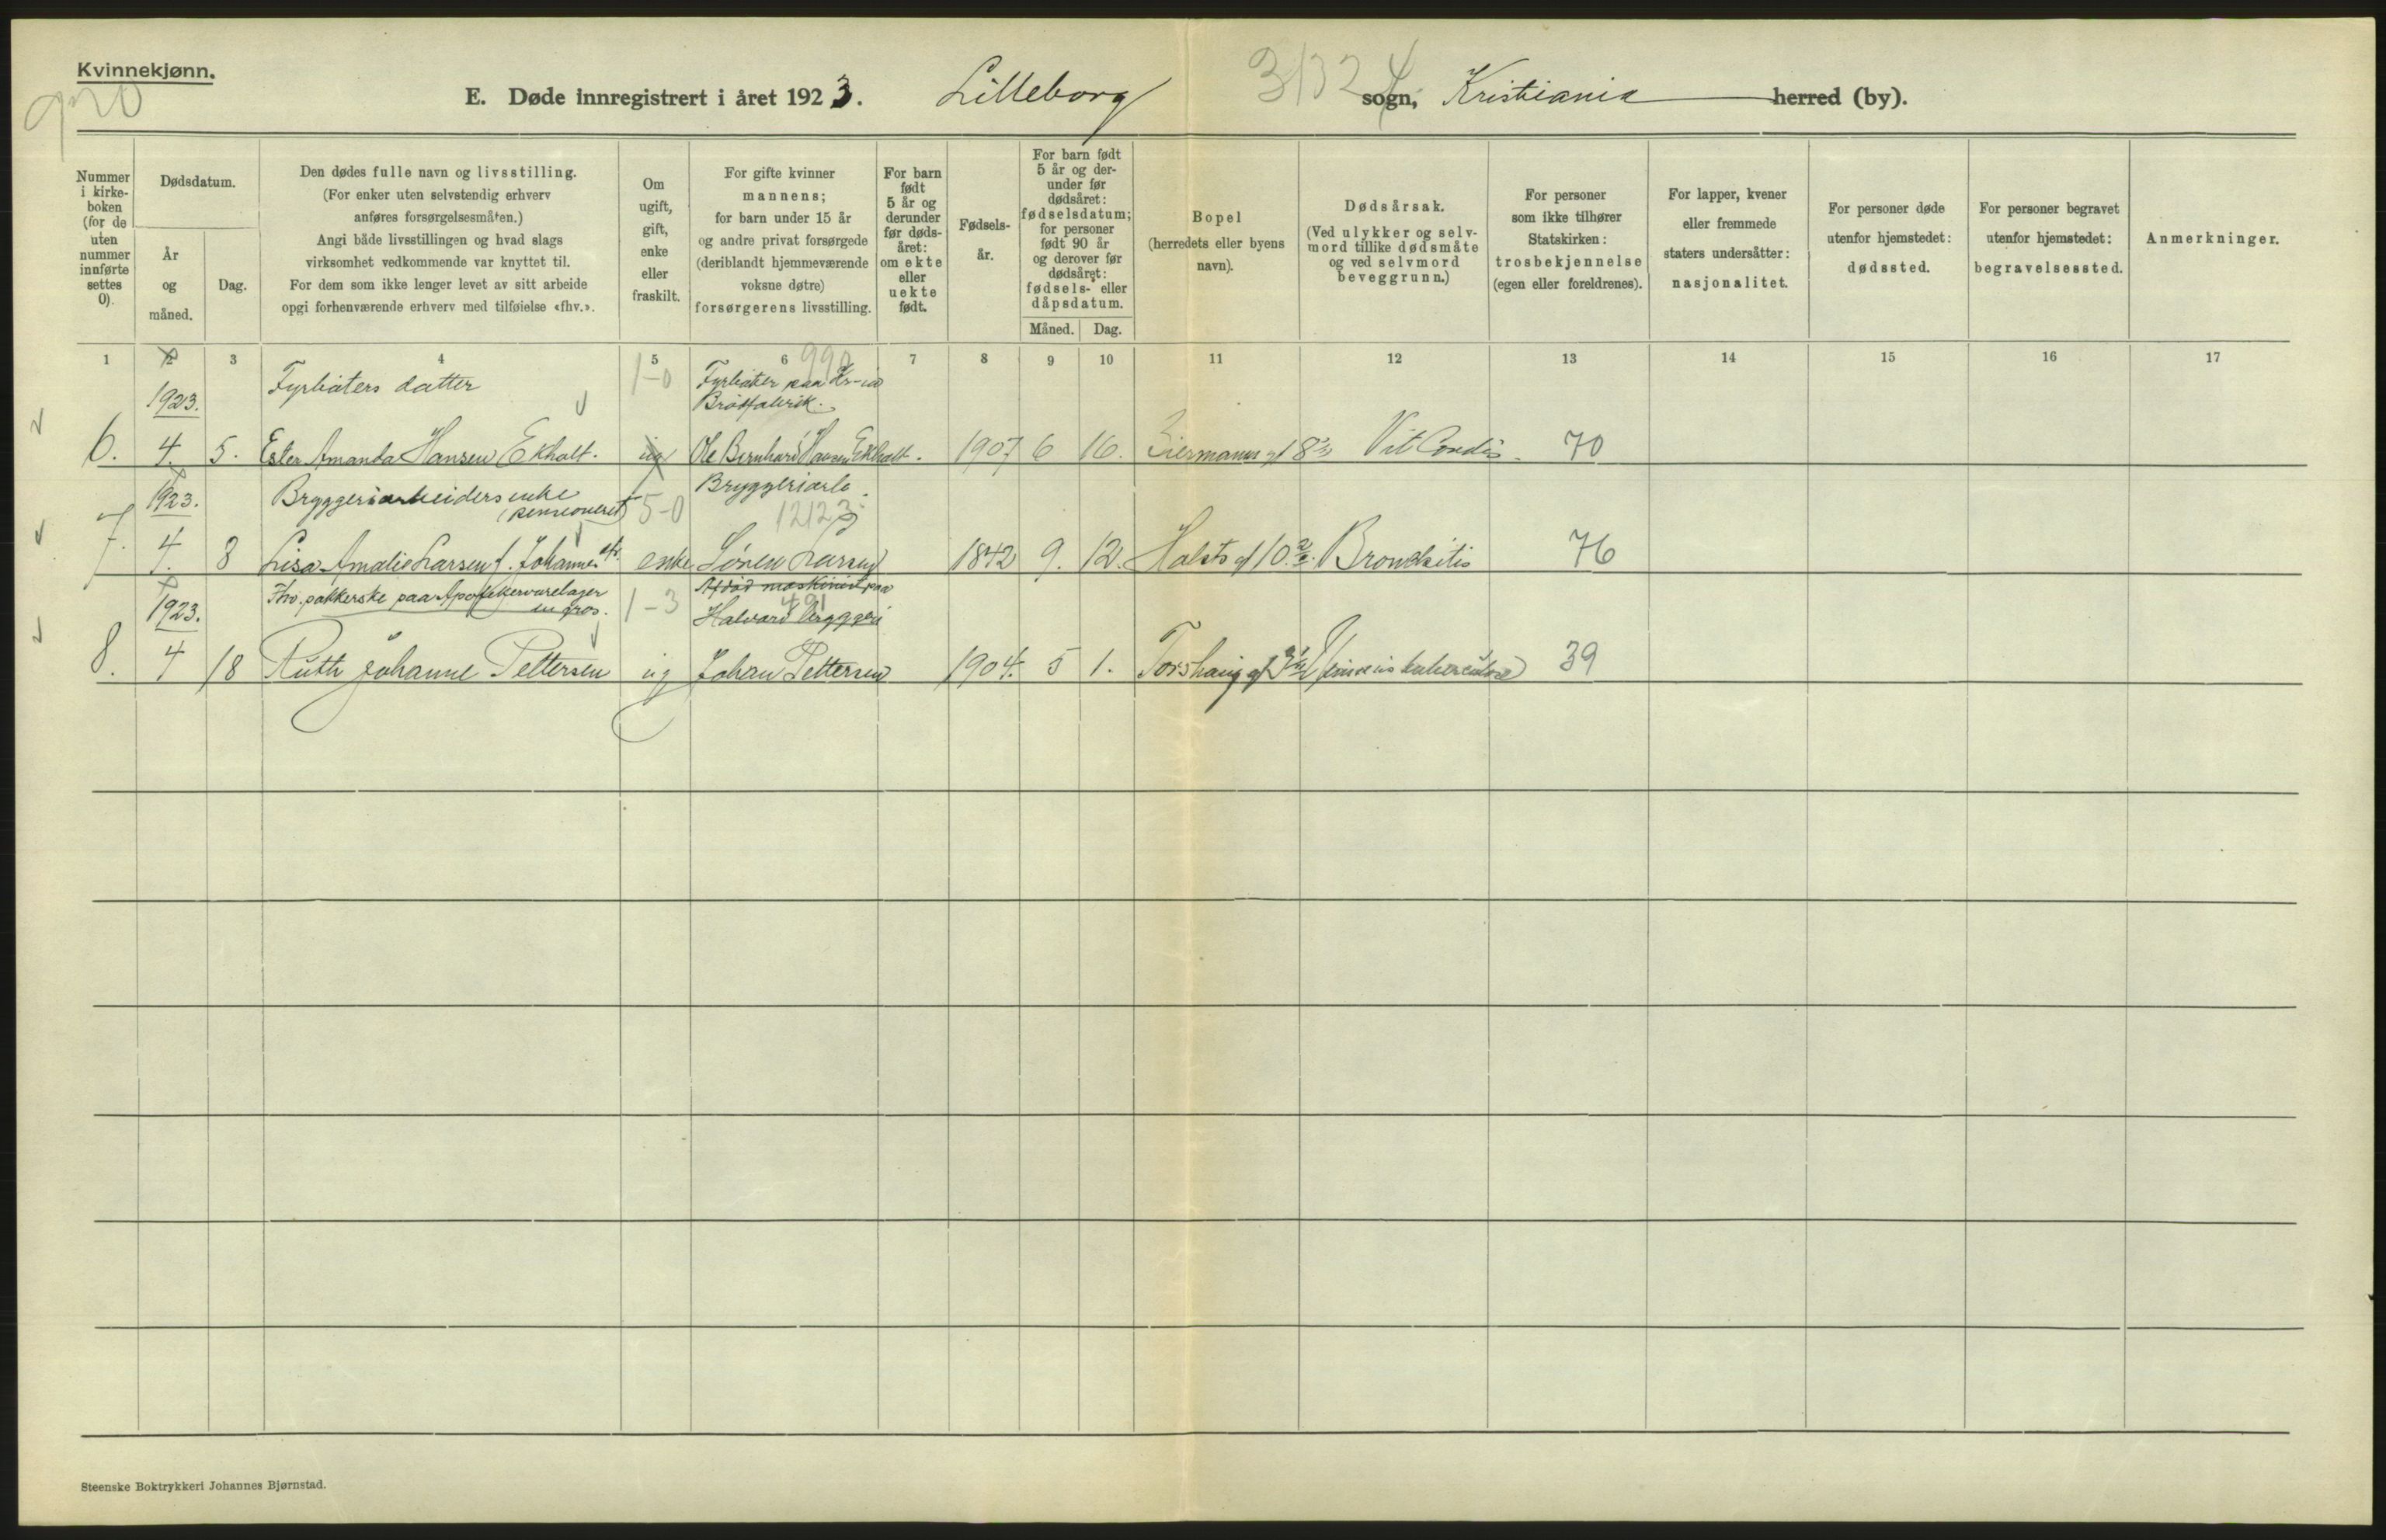 Kvinnekjønn.
920
E. Døde innregistrert i året 1923. Lilleborg sogn, Kristiania herred (by).
3132 4
Nummer i kirkeboken (for de uten nummer innførte settes 0).
Dødsdatum.
År og måned.
Dag.
Den dødes fulle navn og livsstilling.
(For enker uten selvstendig erhverv
anføres forsørgelsesmåten.)
Angi både livsstillingen og hvad slags
virksomhet vedkommende var knyttet til.
For dem som ikke lenger levet av sitt arbeide
opgi forhenværende erhverv med tilføielse «fhv.».
Om
ugift,
gift,
enke
eller
fraskilt.
For gifte kvinner
mannens;
for barn under 15 år
og andre privat forsørgede
(deriblandt hjemmeværende
voksne døtre)
forsørgerens livsstilling.
For barn
født
5 år og
derunder
før døds-
året:
om ekte
eller
uekte
født.
Fødsels-
år.
For barn født
5 år og der-
under før
dødsåret:
fødselsdatum;
for personer
født 90 år
og derover før
dødsåret:
fødsels- eller
dåpsdatum.
Måned. Dag.
Bopel
(herredets eller byens
navn).
Dødsårsak.
(Ved ulykker og selv-
mord tillike dødsmåte
og ved selvmord
beveggrunn.)
For personer
som ikke tilhører
Statskirken:
trosbekjennelse
(egen eller foreldrenes).
For lapper, kvener
eller fremmede
staters undersåtter:
nasjonalitet.
For personer døde
utenfor hjemstedet:
dødssted.
For personer begravet
utenfor hjemstedet:
begravelsessted.
Anmerkninger.
1 2 3 4 5 6 7 8 9 10 11 12 13 14 15 16 17
1923. Fyrbøters datter 1-0 Fyrbøter paa Kr-ia
990
6. 4. 5. Ester Amanda Hansen Ekholt. ug Ole Bernhard Hansen Ekholt. 1907 6 16. Vit Cordis. 70
1923. Bryggeriarbeiders enke
(pensioneret) 5-0 Bryggeriarb.
12123
7. 4. 8 Lisa Amalie Larsen f. Johannes enke Søren Larsen 1842 9. 12. Holsts gt 10 Bronchitis 76
1923. Fhv. pakkerske paa Apothekervarelager
en gros. 1-3 Afdød maskinist paa
Halvard Bryggeri
491
8. 4 18 Ruth Johanne Pettersen ug Johan Pettersen 1904. 5 1. Torshaug gt 39
Steenske Boktrykkeri Johannes Bjørnstad.